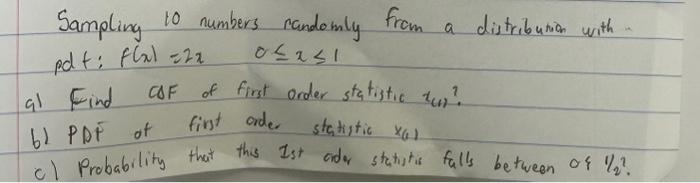 Sampling 10 numbers randomly from a distribution with
pdf: f(x) = 2x 0 ≤ x ≤ 1
a) Find CDF of first order statistic x(1)?
b) PDF of first order statistic x(1)
c) Probability that this 1st order statistic falls between 0 & 1/2?